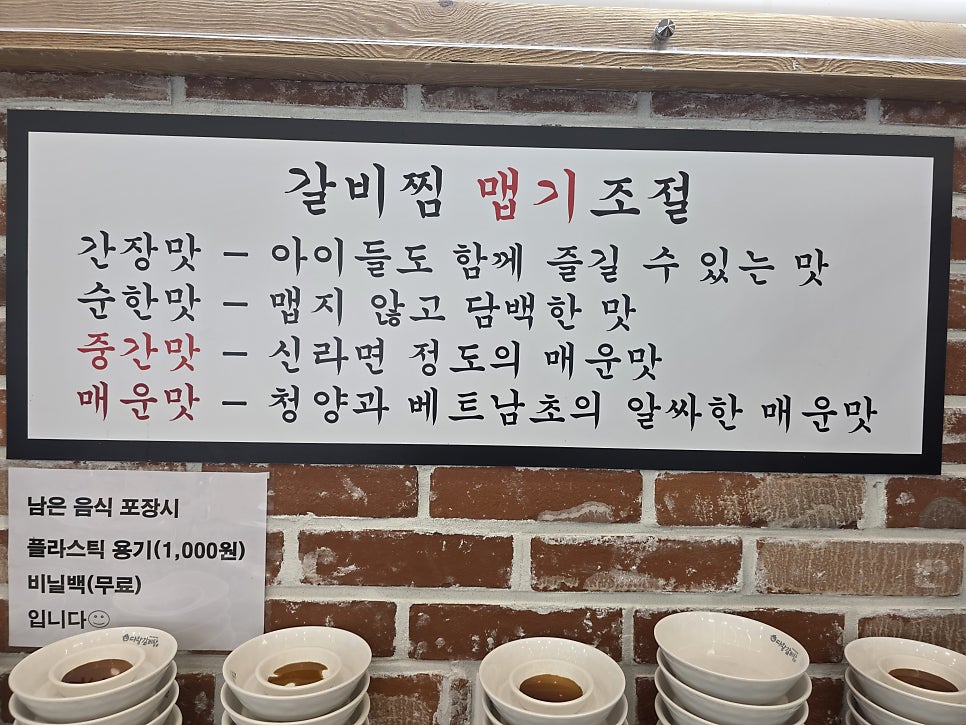 갈비찜 맵기조절
간장맛 - 아이들도 함께 즐길 수 있는 맛
순한맛 - 맵지 않고 담백한 맛
중간맛 - 신라면 정도의 매운맛
매운맛 - 청양과 베트남초의 알싸한 매운맛
남은 음식 포장시
플라스틱 용기(1,000원)
비닐백(무료)
입니다☺